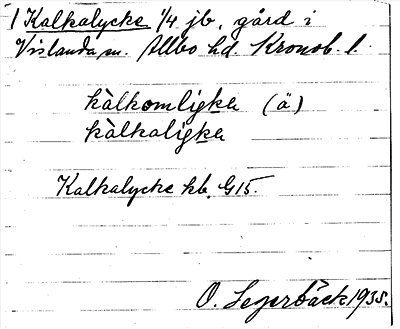 1 Kalkalycke 1/4 jb, gård i
Vislanda sn. Allbo hd Kronob. l.
kàlkomligka (ä)
kàlkaligka
Kalkalycke kb. G15.
O. Segerbäck 1935.